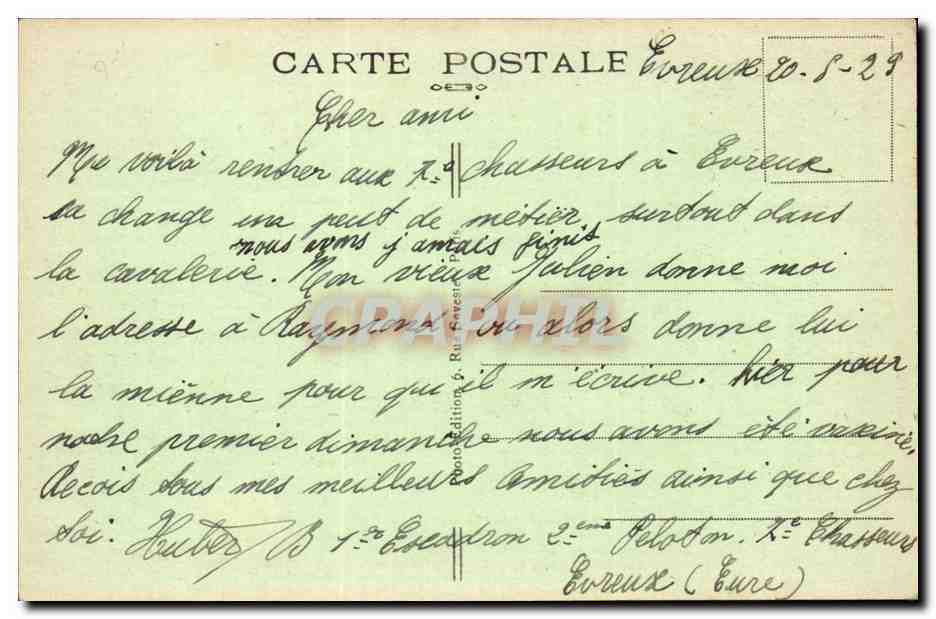 CARTE POSTALE Evreux 20-8-29
Cher ami
Me voilà rentrer aux 7e chasseurs à Evreux
sa change un peut de métier surtout dans
nous avons jamais finis
la cavalerie. Mon vieux Julien donne moi
l'adresse à Raymond ou alors donne lui
la miènne pour qu'il m'écrive. hier pour
notre premier dimanche nous avons été vaxiné.
Recois tous mes meilleurs amitiés ainsi que chez
toi. Hubert B 1er Escadron 2eme Peloton. 7e Chasseurs
Evreux (Eure)
Photo-édition 6, Rue
GRAPHIL